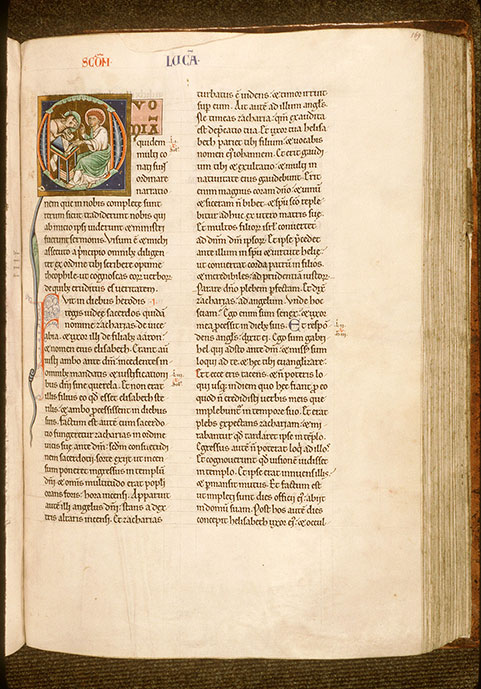 169
SCD̄M· LUCĀ·
QUO
NIĀ
quidem
multi co
nati sunt
ordinare
narratio
nem que in nobis complete sunt
rerum sicut tradiderunt nobis qui
ab inicio ipsi uiderunt & ministri
fuerunt sermonis· Visum ē & michi
assecuto a principio omnib; diligen
ter ex ordine tibi scribere optime
theophile· ut cognoscas eorum uerborum
de quib; eruditus es ueritatem·
Fuit in diebus herodis
regis iudee sacerdos quidā
nomine zacharias de uice
abia· & uxor illi de filiab; aaron·
& nomen eius elisabeth· Erant autē
iusti ambo ante dm̄· incedentes in
omnib; mandatis & iustificationi
bus dn̄i sine querela· Et non erat
illis filius eo qd̄ esset elisabeth ste
rilis· & ambo processissent in diebus
suis· Factum est autē cum sacerdo
tio fungeretur zacharias in ordine
uicis sue ante dm̄· sc̄dm consuetudi
nem sacerdotii· sorte exiit ut incen
sum poneret ingressus in templū
dn̄i· & omnis multitudo erat popli
orans foris· hora incensi· Apparuit
autē illi angelus dn̄i· stans a dex
tris altaris incensi· Et zacharias
turbatus ē uidens· & timor irruit
sup eum· Ait autē ad illum angls·
Ne timeas zacharia· qm̄ exaudita
est deprecatio tua· Et uxor tua helisa
beth pariet tibi filium· & uocabis
nomen ei iohannem· Et erit gaudi
um tibi & exultatio· & multi in
natiuitate eius gaudebunt· Erit
enim magnus coram dn̄o· & uinū
& siceram n̄ bibet· & spu sc̄o reple
bitur adhuc ex utero matris sue·
Et multos filiorum isrl conuertet
ad dn̄m dm̄ ipsorum· Et ipse p̄cedet
ante illum in spu & uirtute helie·
ut conuertat corda patrū in filios·
& incredibiles· ad prudentiā iustorum·
Parare dn̄o plebem p̄fectam· Et dix̄
zacharias ad angelum· Vnde hoc
sciam· Ego enim sum senex· & uxor
mea p̄cessit in dieb; suis· Et respō
dens angls· dixit ei· Ego sum gabri
hel qui asto ante dm̄· & missus sum
loqui ad te· & hec tibi euangelizare·
Et ecce eris tacens· & n̄ poteris lo
qui usq; in diem quo hec fiant· p eo
quod n̄ credidisti uerbis meis que
implebunt in tempore suo· Et erat
plebs expectans zachariam· & mi
rabantur qd̄ tardaret ipse in tēplo·
Egressus autē n̄ poterat loqui ad illos·
Et cognouerunt qd̄ uisionē uidisset
in templo· Et ipse erat innuens illis·
& p̄mansit mutus· Et factum est
ut impleti sunt dies officii ei· abiit
in domū suam· Post hos autē dies
concepit helisabeth uxor ei· & occul